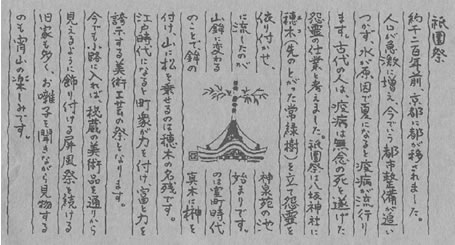 祇園祭
約千二百年前、京都に都が移されました。
人口が急激に増え、今でいう都市整備が追い
つかず、水が原因で夏になると疫病が流行り
ます。古代の人は、疫病は無念の死を遂げた
怨霊の仕業と考えました。祇園祭は八坂神社に
穂木(先のとがった常緑樹)を立て、怨霊を
依り付かせ、神泉苑の池
に流したのが始まりです。
山鉾に変わるのは室町時代
のことで鉾の真木に榊を
付け、山に松を乗せるのは穂木の名残です。
江戸時代になると町衆が力を付け、富と力を
誇示する美術工芸の祭となります。
今でも小路に入れば、秘蔵の美術品を通りから
見えるように飾り付ける屏風祭を続ける
旧家も多く、お囃子を聞きながら見物する
のも宵山の楽しみです。